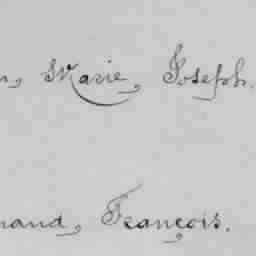 Marie, Joseph.
François.